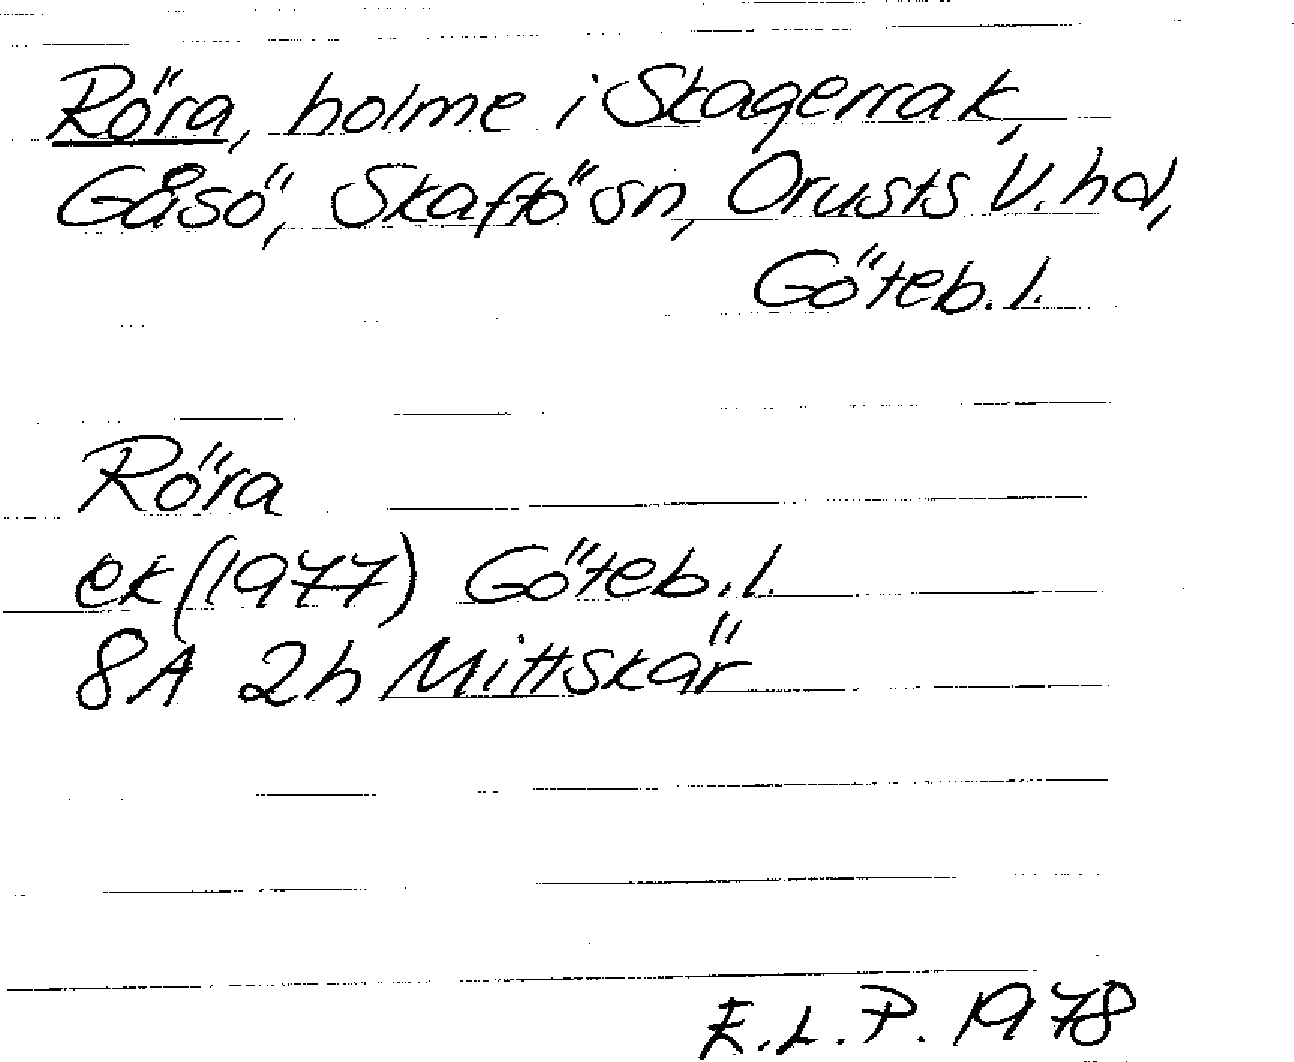 Röra, holme i Skagerrak,
Gåsö, Skaftö sn, Orusts V. hd,
Göteb. l.
Röra
ek (1977) Göteb. l.
8A 2h Mittskär
E.L.P. 1978